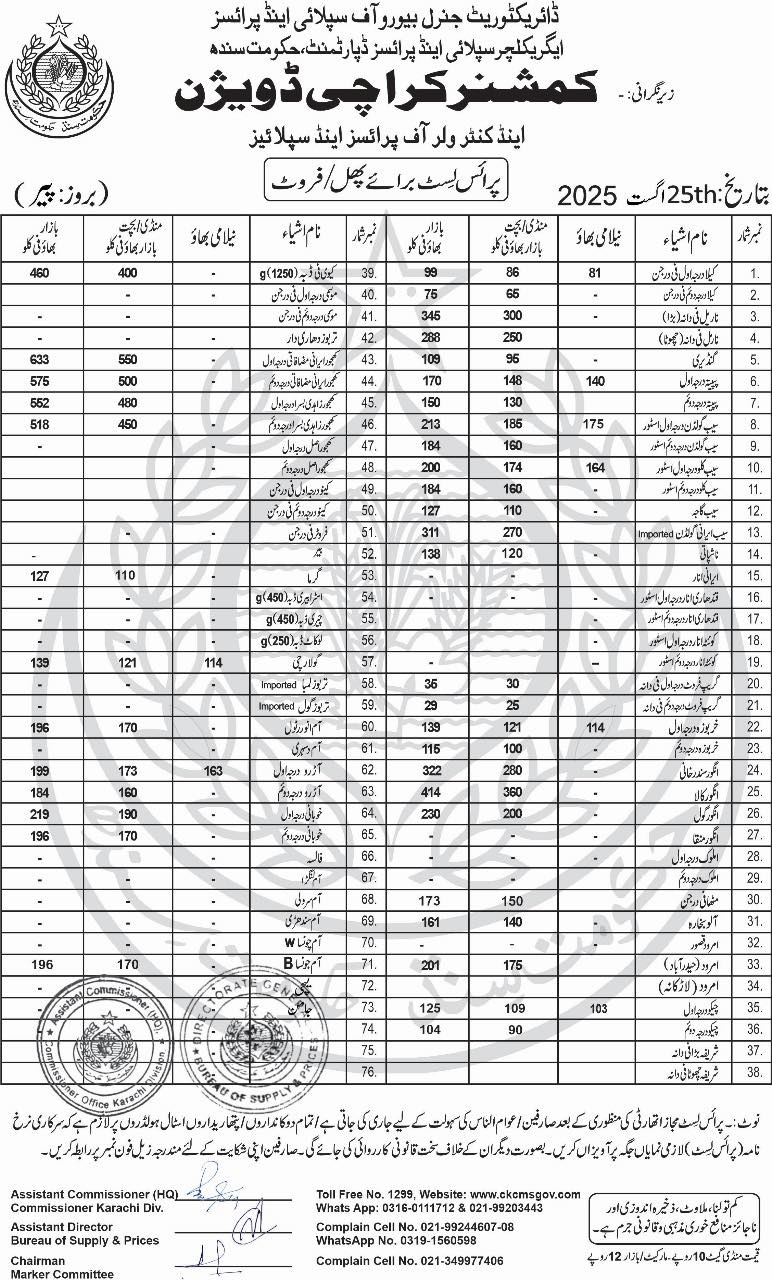 ڈائریکٹوریٹ جنرل بیورو آف سپلائی اینڈ پرائسز
ایگریکلچر سپلائی اینڈ پرائسز ڈپارٹمنٹ، حکومت سندھ
زیر نگرانی: - کمشنر کراچی ڈویژن
اینڈ کنٹرولر آف پرائسز اینڈ سپلائیز
پرائس لسٹ برائے پھل / فروٹ
تاریخ: 25th اگست 2025
(بروز: پیر)
نمبر شمار نام اشیاء نیلامی بھاؤ منڈی/بچت بازار بھاؤ فی کلو بازار بھاؤ فی کلو
1. کیلا درجہ اول فی درجن 81 86 99
2. کیلا درجہ دوئم فی درجن - 65 75
3. ناریل فی دانہ (بڑا) - 300 345
4. ناریل فی دانہ (چھوٹا) - 250 288
5. گنڈیری - 95 109
6. پپیتہ درجہ اول 140 148 170
7. پپیتہ درجہ دوئم - 130 150
8. سیب گولڈن درجہ اول اسٹور 175 185 213
9. سیب گولڈن درجہ دوئم اسٹور - 160 184
10. سیب کلو درجہ اول اسٹور 164 174 200
11. سیب کلو درجہ دوئم اسٹور - 160 184
12. سیب گاجہ - 110 127
13. سیب ایرانی گولڈن Imported - 270 311
14. ناشپاتی - 120 138
15. ایرانی انار - - -
16. قندھاری انار درجہ اول اسٹور - - -
17. قندھاری انار درجہ دوئم اسٹور - - -
18. کوئٹہ انار درجہ اول اسٹور
19. کوئٹہ انار درجہ دوئم اسٹور - - -
20. گریپ فروٹ درجہ اول فی دانہ - 30 35
21. گریپ فروٹ درجہ دوئم فی دانہ - 25 29
22. خربوزہ درجہ اول 114 121 139
23. خربوزہ درجہ دوئم - 100 115
24. انگور سندرخانی - 280 322
25. انگور کالا - 360 414
26. انگور گول - 200 230
27. انگور منقا - - -
28. املوک درجہ اول - - -
29. املوک درجہ دوئم - -
30. مٹھا فی درجن - 150 173
31. آلو بخارہ - 140 161
32. امرود قصور - - -
33. امرود (حیدرآباد) - 175 201
34. امرود (لاڑکانہ) - - -
35. چیکو درجہ اول 103 109 125
36. چیکو درجہ دوئم - 90 104
37. شریفہ بڑا فی دانہ - - -
38. شریفہ چھوٹا فی دانہ - - -
نمبر شمار نام اشیاء نیلامی بھاؤ منڈی/بچت بازار بھاؤ فی کلو بازار بھاؤ فی کلو
39. کیوی فی ڈبہ (1250)g - 400 460
40. موسمی درجہ اول فی درجن - - -
41. موسمی درجہ دوئم فی درجن - - -
42. تربوز دھاری دار - - -
43. کھجور ایرانی مضافاتی درجہ اول - 550 633
44. کھجور ایرانی مضافاتی درجہ دوئم - 500 575
45. کھجور زاہدی بسرا درجہ اول - 480 552
46. کھجور زاہدی بسرا درجہ دوئم - 450 518
47. کھجور اصل درجہ اول - - -
48. کھجور اصل درجہ دوئم - - -
49. کینو درجہ اول فی درجن
50. کینو درجہ دوئم فی درجن
51. فروٹر فی درجن - -
52. بیر - -
53. گرما - 110 127
54. اسٹرابیری ڈبہ (450)g - - -
55. چیری ڈبہ (450)g - - -
56. لوکاٹ ڈبہ (250)g - - -
57. گولارچی 114 121 139
58. تربوز لمبا Imported - - -
59. تربوز گول Imported - - -
60. آم انور رٹول - 170 196
61. آم دسہری - - -
62. آڑو درجہ اول 163 173 199
63. آڑو درجہ دوئم - 160 184
64. خوبانی درجہ اول - 190 219
65. خوبانی درجہ دوئم - 170 196
66. فالسہ - - -
67. آم لنگڑا - - -
68. آم سرولی - - -
69. آم سندھڑی - - -
70. آم چونسا W - - -
71. آم چونسا B - 170 196
72. لیچی
73. جامن
74.
75.
76.
Assistant Commissioner (HQ),
Commissioner Office Karachi Division
DIRECTORATE GENERAL
BUREAU OF SUPPLY & PRICES
نوٹ:- پرائس لسٹ مجاز اتھارٹی کی منظوری کے بعد صارفین / عوام الناس کی سہولت کے لیے جاری کی جاتی ہے / تمام دوکانداروں / پتھاریداروں / اسٹال ہولڈروں پر لازم ہے کہ سرکاری نرخ
نامہ (پرائس لسٹ) لازمی نمایاں جگہ پر آویزاں کریں۔ بصورت دیگر ان کے خلاف سخت قانونی کارروائی کی جائے گی۔ صارفین اپنی شکایت کے لئے مندرجہ زیل فون نمبر پر رابطہ کریں۔
Assistant Commissioner (HQ)
Commissioner Karachi Div.
Assistant Director
Bureau of Supply & Prices
Chairman
Marker Committee
Toll Free No. 1299, Website: www.ckcmsgov.com
Whats App: 0316-0111712 & 021-99203443
Complain Cell No. 021-99244607-08
WhatsApp No. 0319-1560598
Complain Cell No. 021-349977406
کم تولنا، ملاوٹ، ذخیرہ اندوزی اور
ناجائز منافع خوری مذہبی و قانونی جرم ہے۔
قیمت منڈی گیٹ 10 روپے - مارکیٹ / بازار 12 روپے